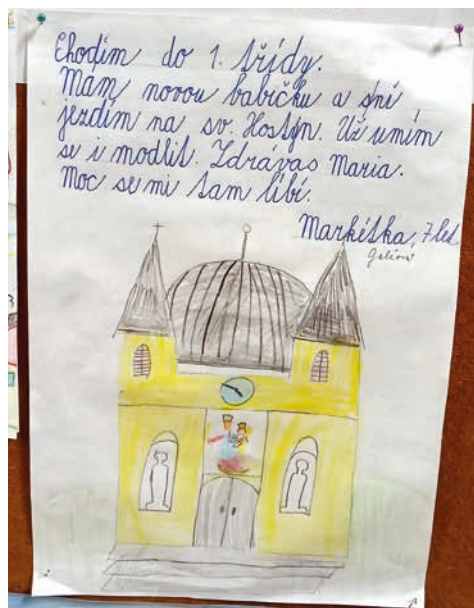 Chodím do 1. třídy.
Mám novou babičku a sní
jezdím na sv. Hostýn. Už umím
se i modlit. Zdrávas Maria.
Moc se mi tam líbí.
Markétka, 7 let